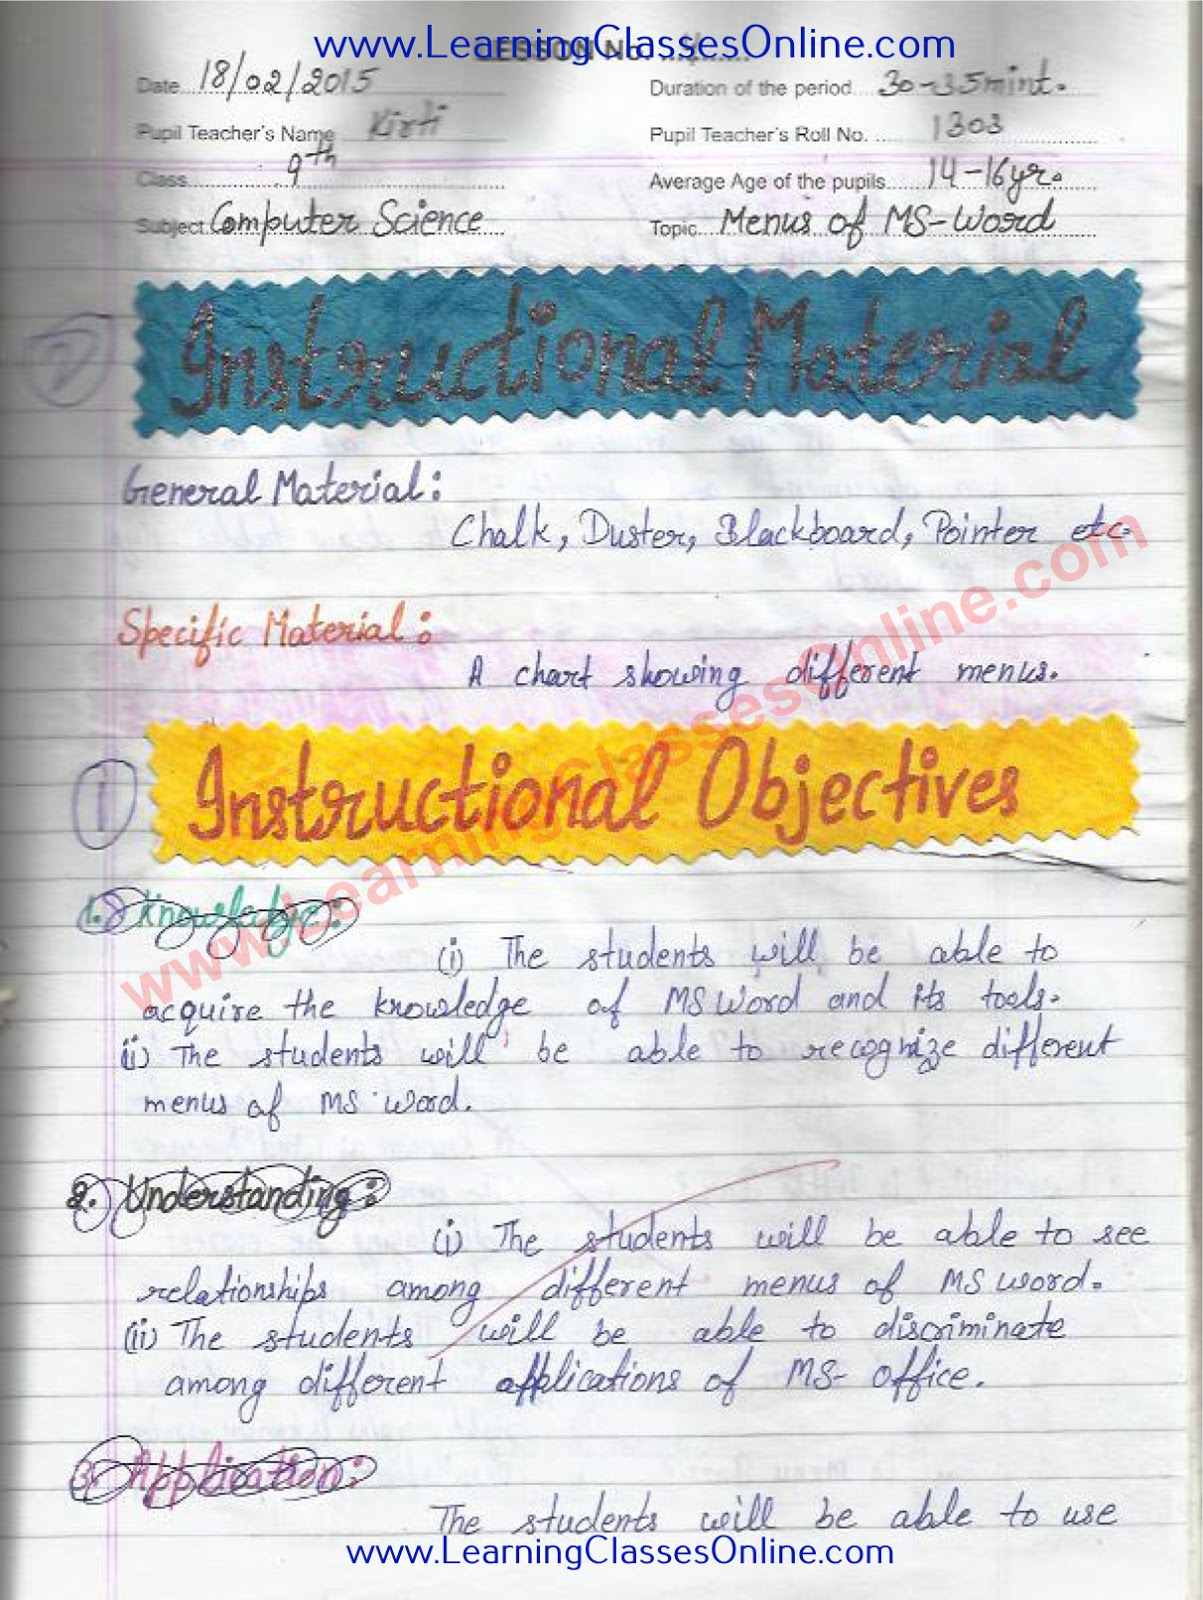 www.LearningClassesOnline.com
LESSON No.
Date 18/02/2015 Duration of the period 30-35mint.
Pupil Teacher's Name Kirti Pupil Teacher's Roll No. 1303
Class 9th Average Age of the pupils 14-16yr.
Subject Computer Science Topic Menus of MS-Word
2 Instructional Material
General Material:
Chalk, Duster, Blackboard, Pointer etc.
Specific Material:
A chart showing different menus.
1 Instructional Objectives
www.LearningClassesOnline.com
1. Knowledge:
(i) The students will be able to
acquire the knowledge of MS Word and its tools.
(ii) The students will be able to recognize different
menus of MS word.
2. Understanding:
(i) The students will be able to see
relationships among different menus of MS word.
(ii) The students will be able to discriminate
among different applications of MS- office.
3. Application:
The students will be able to use
www.LearningClassesOnline.com